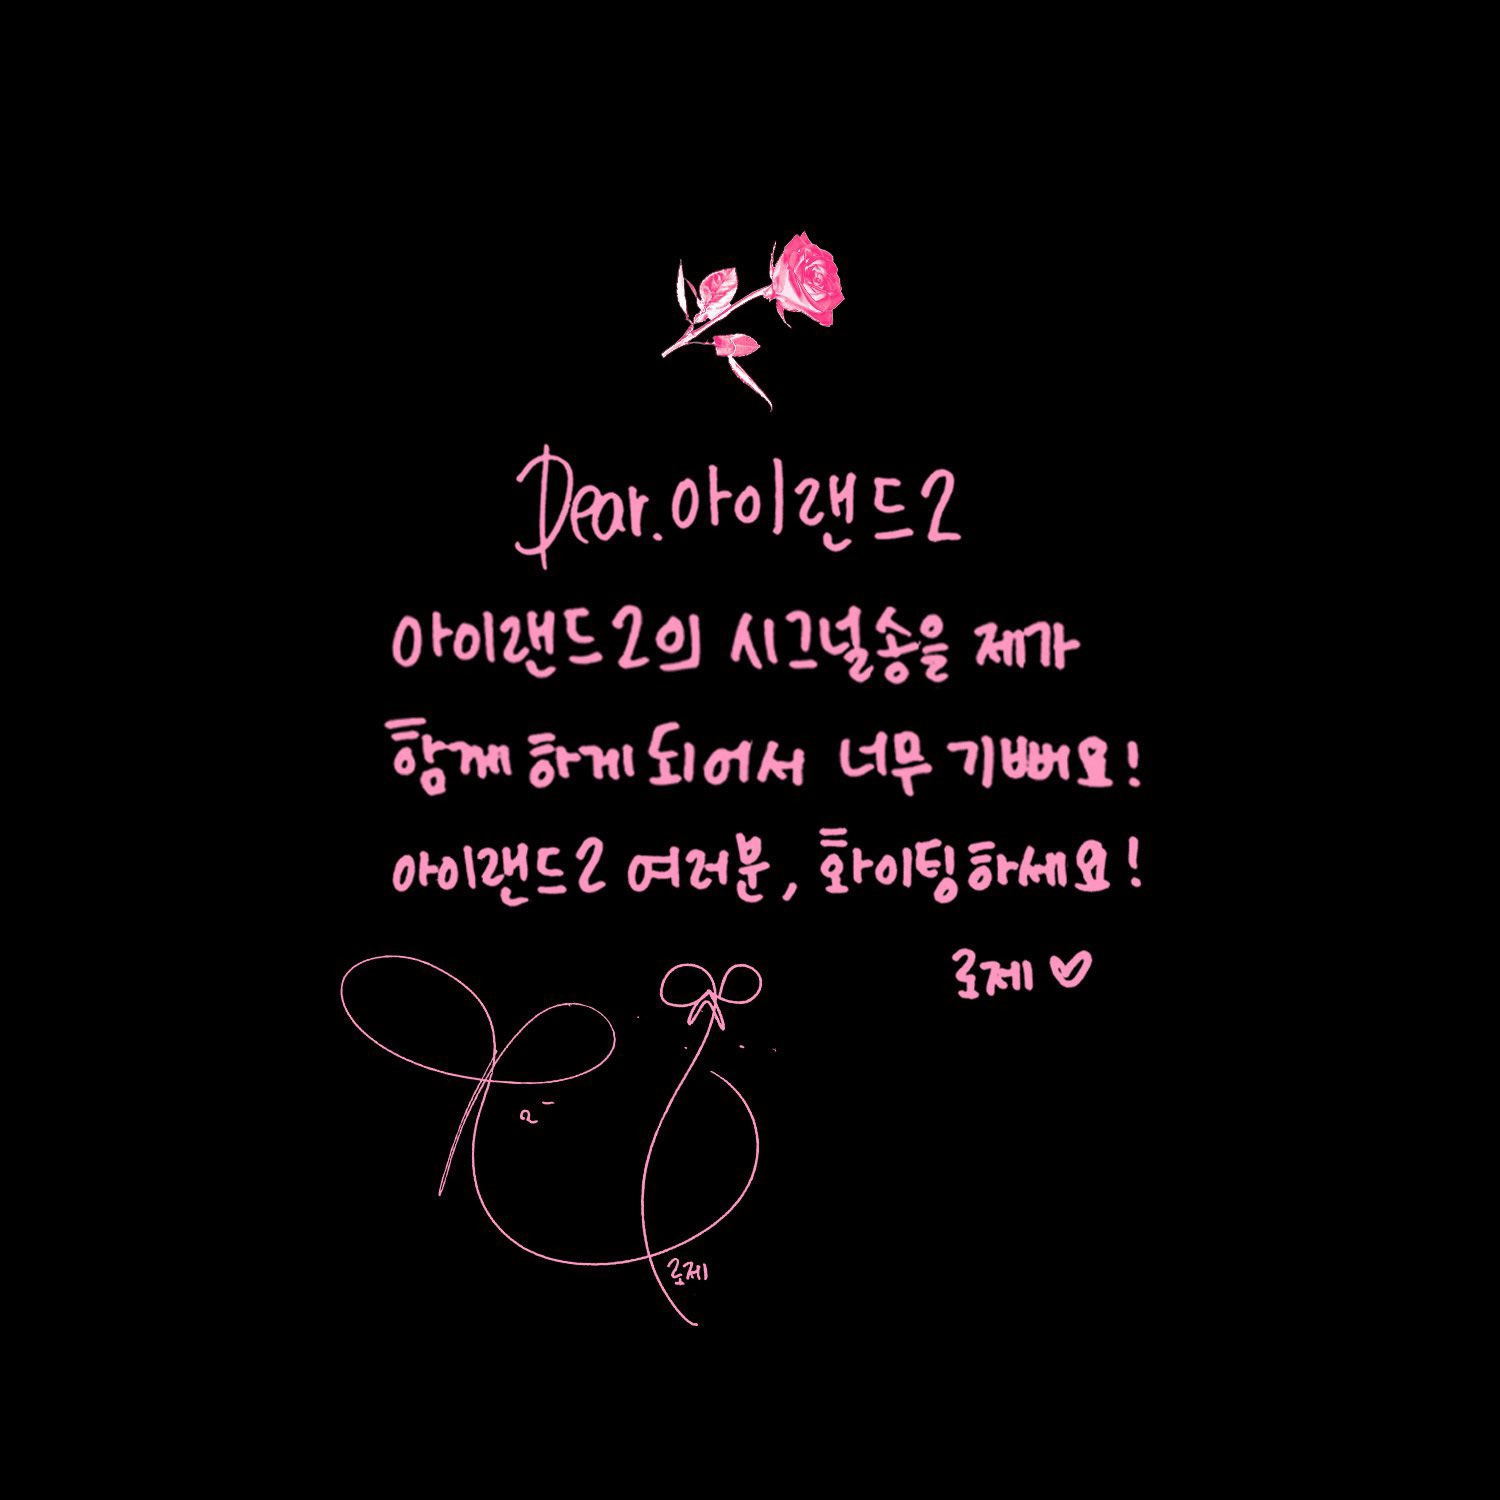 Dear.아이랜드2
아이랜드2의 시그널송을 제가
함께 하게 되어서 너무 기뻐요!
아이랜드2 여러분, 화이팅하세요!
로제 ♥
로제